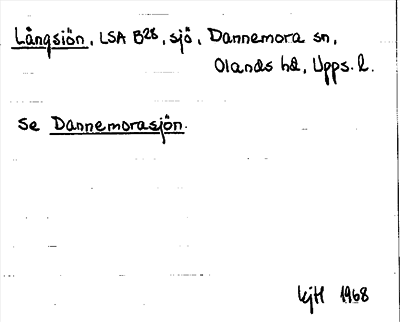 Långsiön, LSA B28, sjö, Dannemora sn,
Olands hd, Upps. l.
Se Dannemorasjön.
kjH 1968